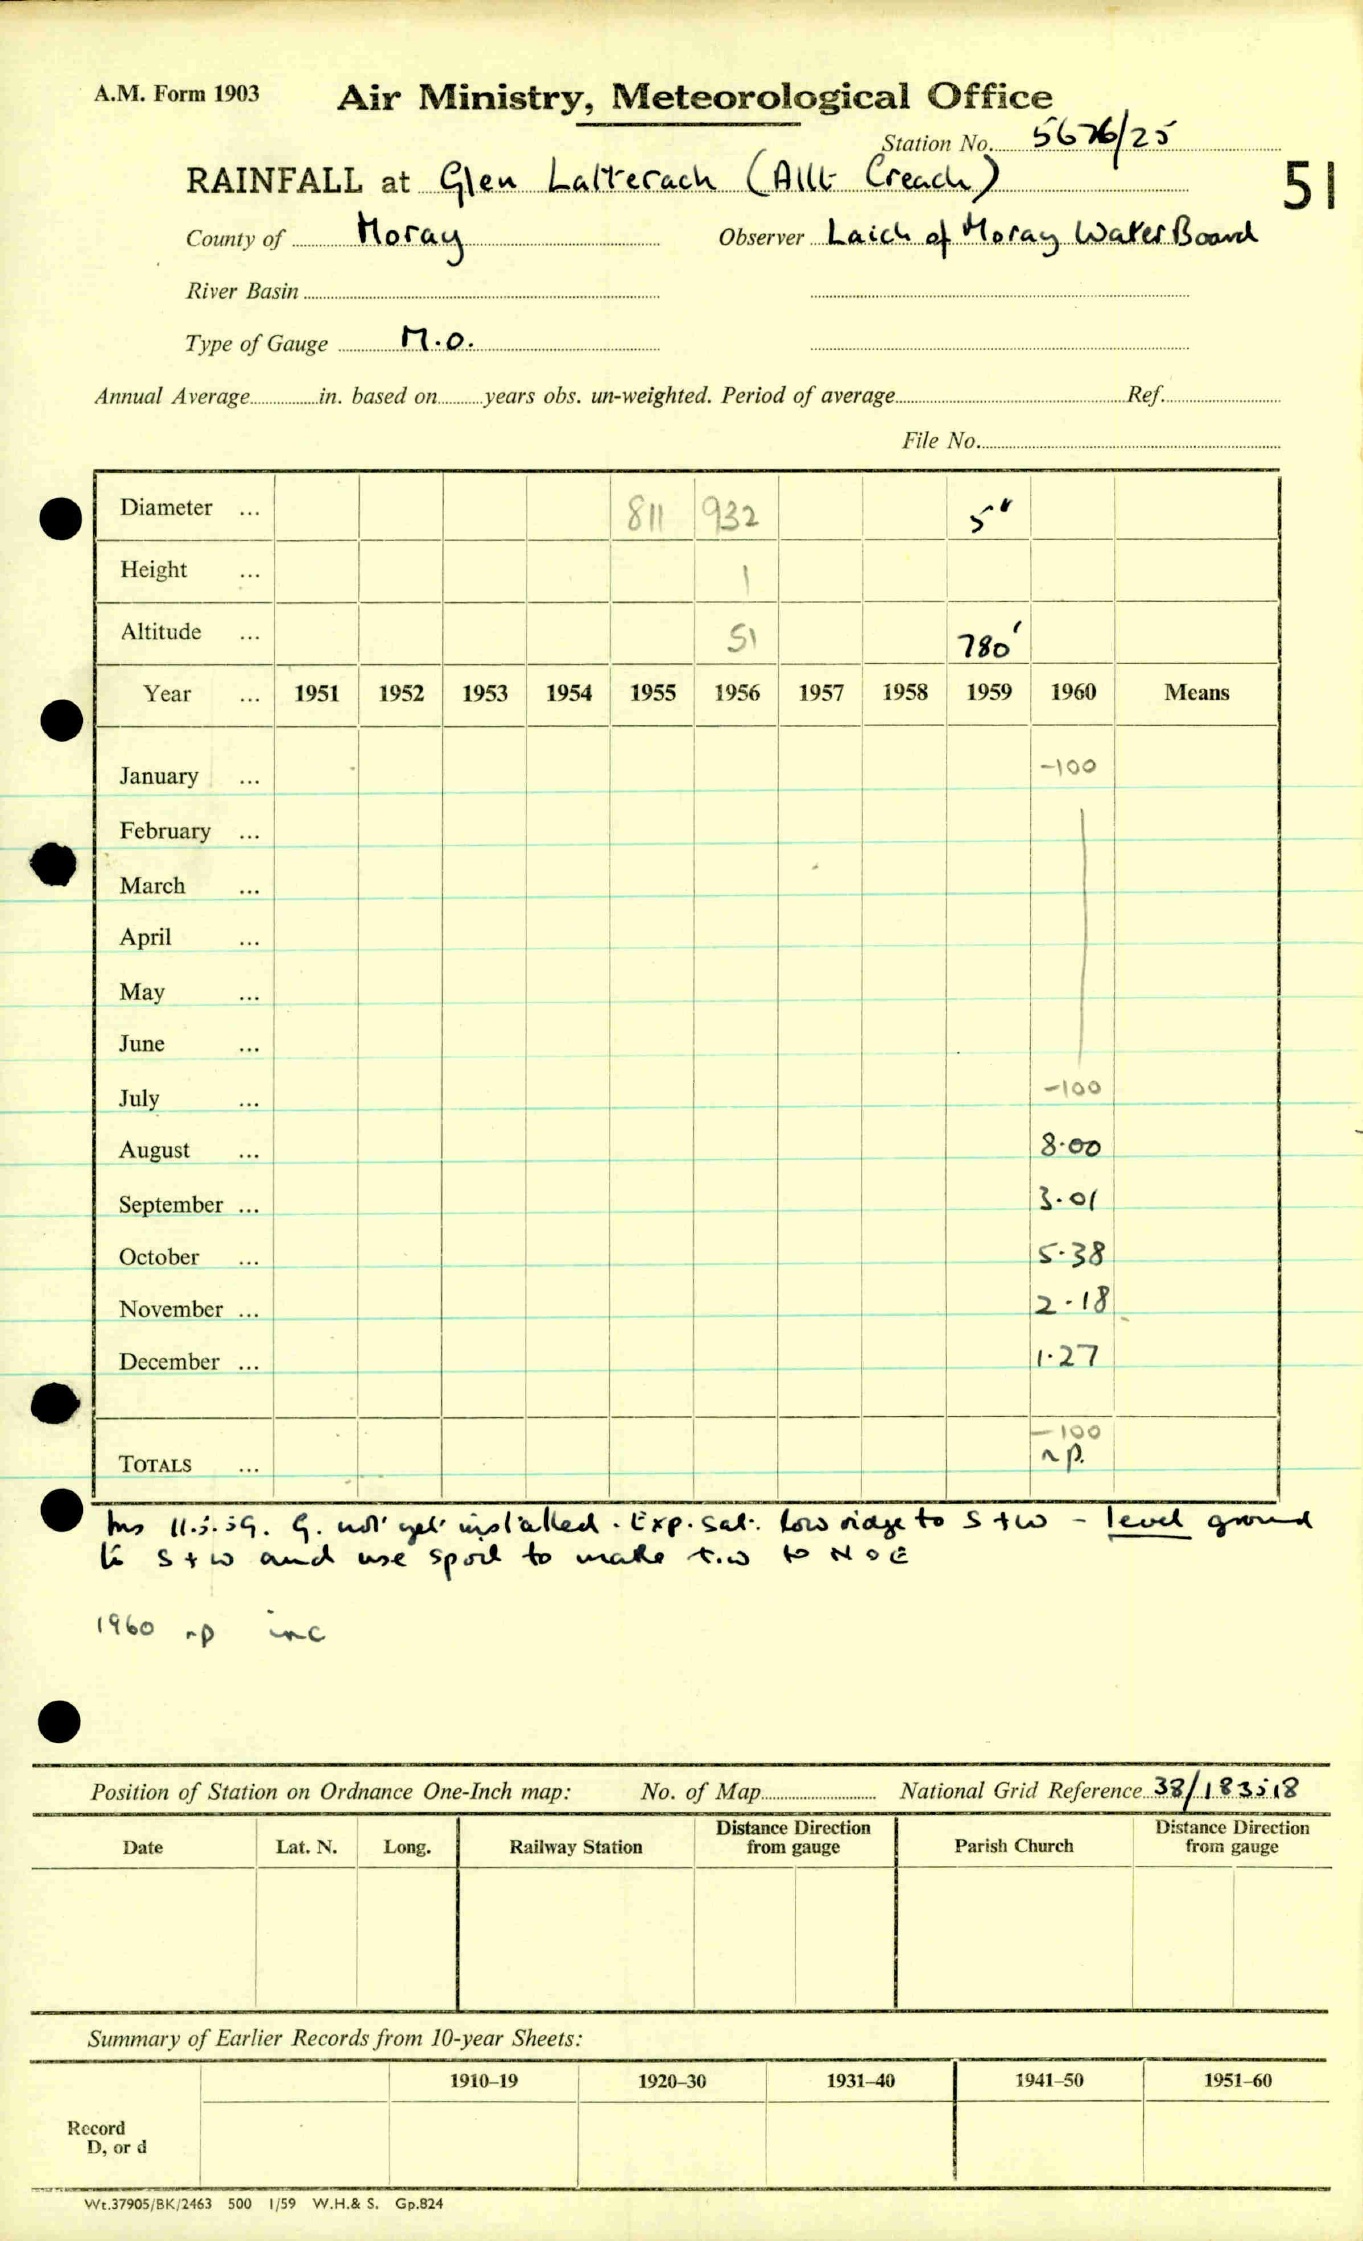 A.M. Form 1903 Air Ministry, Meteorological Office
Station No. 5676/25
RAINFALL at Glen Latterach (Allt Creach) 51
County of Moray Observer Laich of Moray Water Board
River Basin
Type of Gauge M.O.
Annual Average in. based on years obs. un-weighted. Period of average Ref.
File No.
Diameter ... 811 932 5"
Height ... 1
Altitude ... 51 780'
Year ... 1951 1952 1953 1954 1955 1956 1957 1958 1959 1960 Means
January ... -100
February ...
March ...
April ...
May ...
June ...
July ... -100
August ... 8.00
September ... 3.01
October ... 5.38
November ... 2.18
December ... 1.27
-100
TOTALS ... np.
Ins 11.5.59. G. not yet installed. Exp. sat. Low ridge to S + W - level ground
to S + W and use spoil to make t.w to N & E
1960 np inc
Position of Station on Ordnance One-Inch map: No. of Map National Grid Reference 38/183518
Date Lat. N. Long. Railway Station Distance Direction from gauge Parish Church Distance Direction from gauge
Summary of Earlier Records from 10-year Sheets:
1910–19 1920–30 1931–40 1941–50 1951–60
Record
D, or d
Wt.37905/BK/2463 500 1/59 W.H.& S. Gp.824